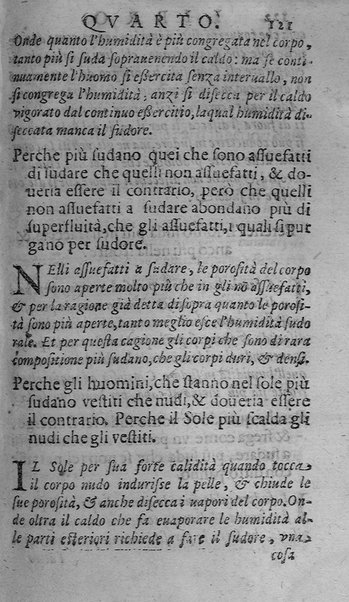 QVARTO. 121
Onde quanto l'humidità è più congregata nel corpo,
tanto più si suda soprauenendo il caldo: ma se conti-
nuamente l'huomo si essercita senza interuallo, non
si congrega l'humidità; anzi si disecca per il caldo
vigorato dal continuo essercitio, laqual humidità di-
seccata manca il sudore.
Perche più sudano quei che sono assuefatti
di sudare che quelli non assuefatti, & do-
ueria essere il contrario, però che quelli
non assuefatti a sudare abondano più di
superfluità, che gli assuefatti, i quali si pur
gano per sudore.
NElli assuefatti a sudare, le porosità del corpo
sono aperte molto più che in gli nõ assuefatti,
& per la ragione già detta di sopra quanto le porosi-
tà sono più aperte, tanto meglio esce l'humidità sudo
rale. Et per questa cagione gli corpi che sono di rara
compositione più sudano, che gli corpi duri, & densi.
Perche gli huomini, che stanno nel sole più
sudano vestiti che nudi, & doueria essere
il contrario. Perche il Sole più scalda gli
nudi che gli vestiti.
IL Sole per sua forte calidità quando tocca
il corpo nudo indurisse la pelle, & chiude le
sue porosità, & anche disecca i uapori del corpo. On-
de oltra il caldo che fa euaporare le humidità al-
le parti esteriori richiede a fare il sudore, vna
cosa